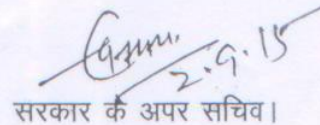 2.9.15
सरकार के अपर सचिव।